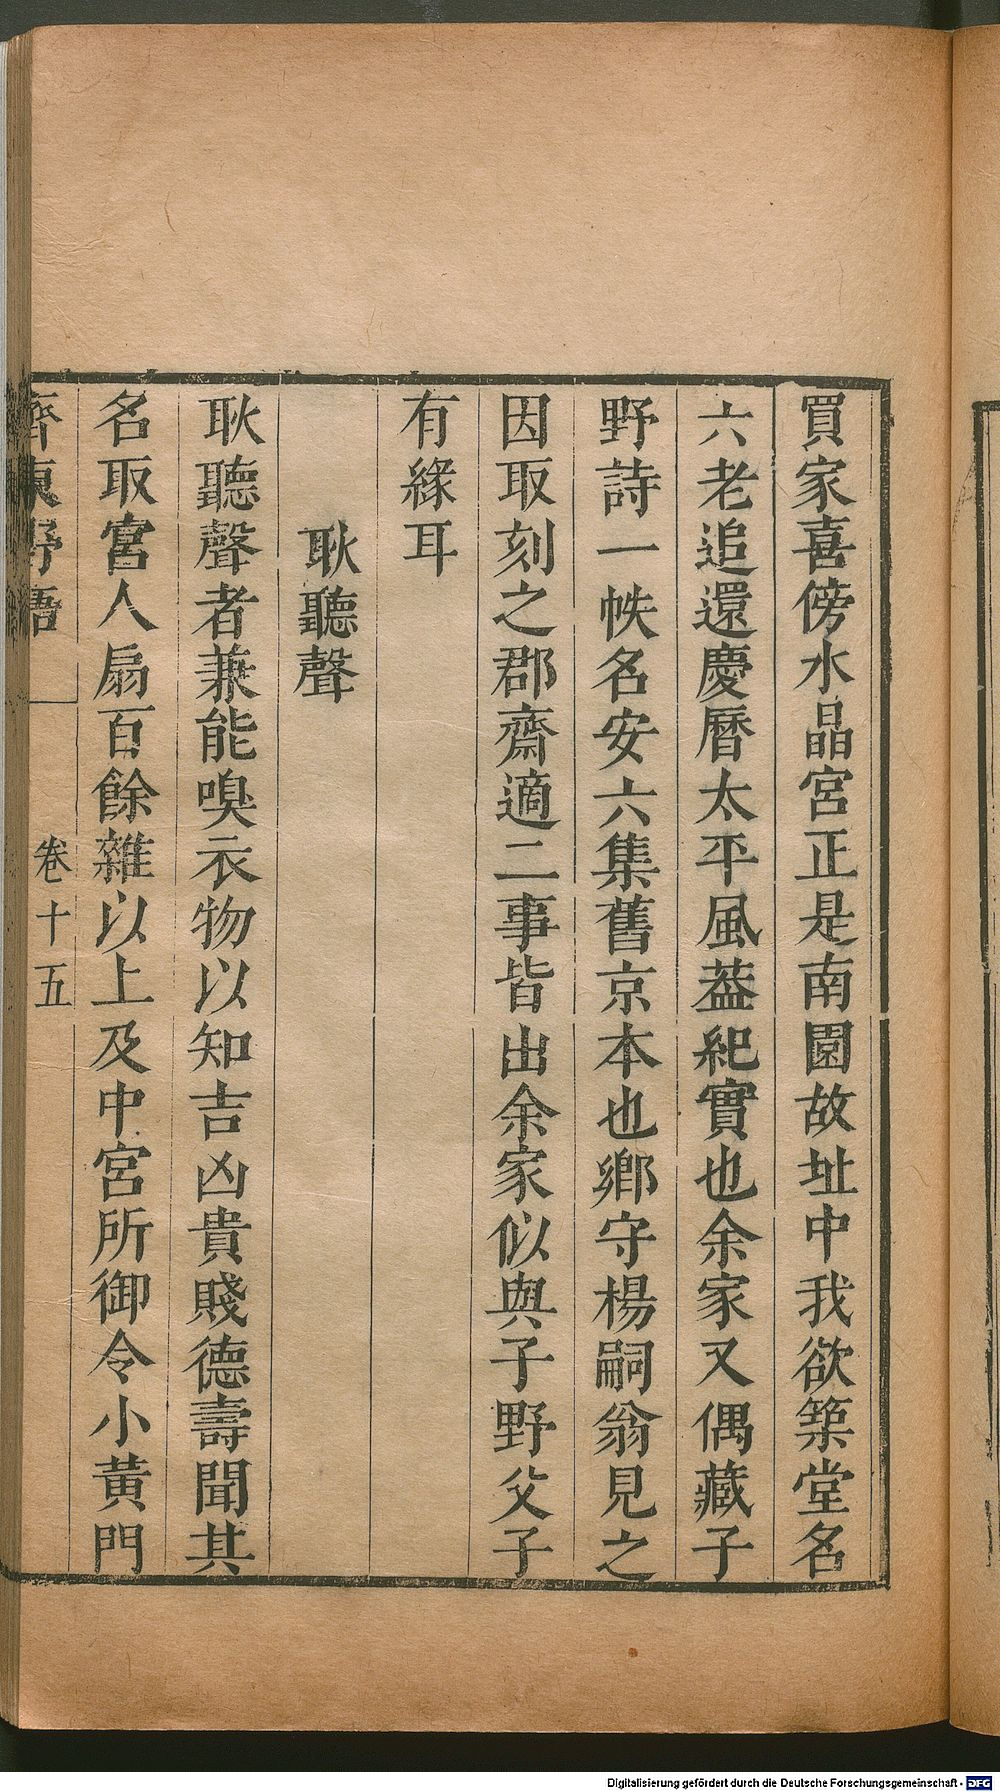 買家喜傍水晶宮正是南園故址中我欲築堂名
六老追還慶曆太平風葢紀實也余家又偶藏子
野詩一帙名安六集舊京本也鄉守楊嗣翁見之
因取刻之郡齋適二事皆出余家似與子野父子
有緣耳
耿聽聲
耿聽聲者兼能嗅衣物以知吉凶貴賤德壽聞其
名取宮人扇百餘雜以上及中宮所御令小黃門
齊東野語 卷十五
Digitalisierung gefördert durch die Deutsche Forschungsgemeinschaft - DFG